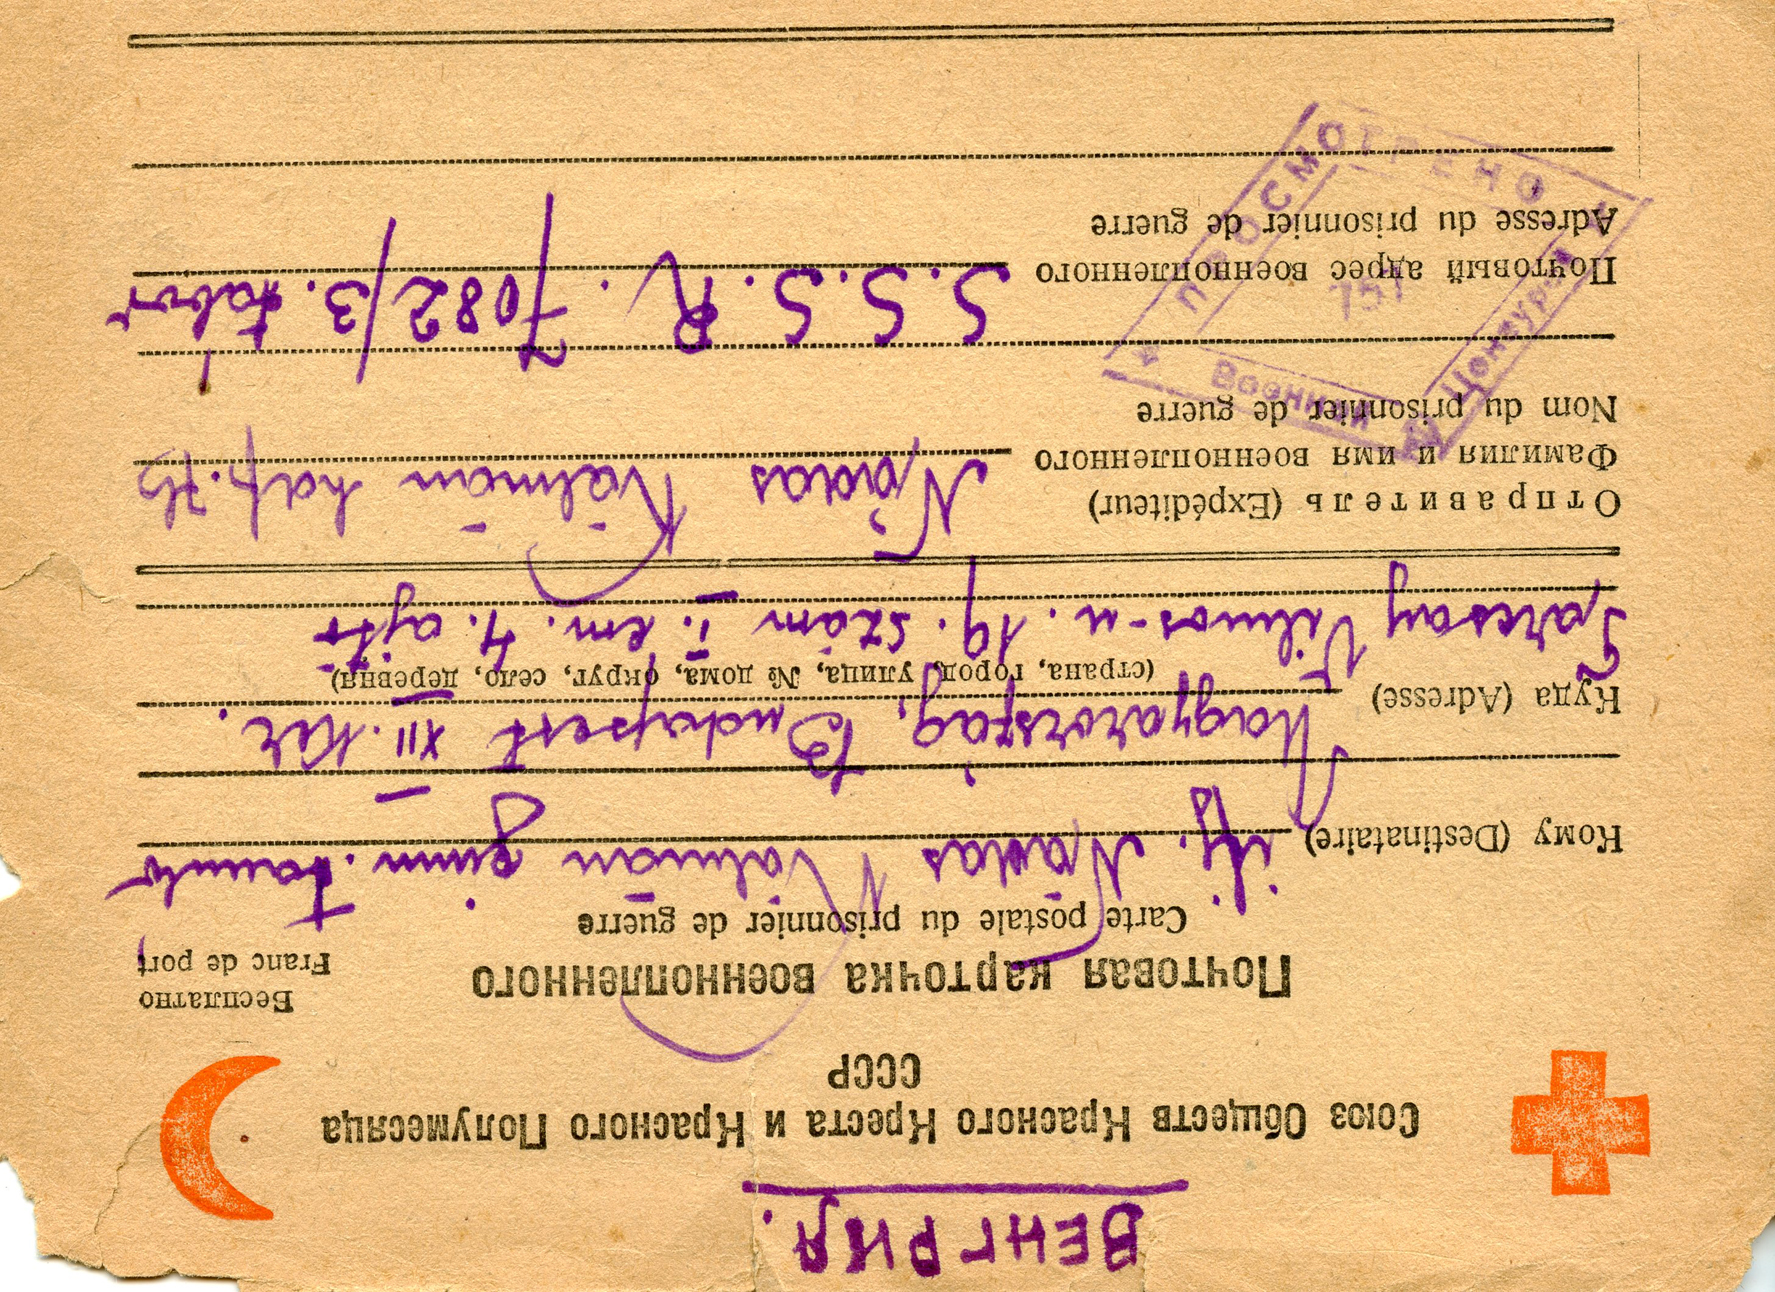 ВЕНГРИЯ.
Союз Обществ Красного Креста и Красного Полумесяца
СССР
Почтовая карточка военнопленного
Бесплатно
Franc de port
Carte postale du prisonnier de guerre
Кому (Destinataire) ifj. Nádas Kálmán gimn. tanuló
Magyarország, Budapest XII. Ker.
Куда (Adresse)
(страна, город, улица, № дома, округ, село, деревня)
Vilmos-u. 19. szám I. em. 4. ajtó
Отправитель (Expéditeur)
Фамилия и имя военнопленного Nádas Kálmán hdp.
Nom du prisonnier de guerre
Почтовый адрес военнопленного S.S.S.R. 7082/3. tábor
Adresse du prisonnier de guerre
ПРОСМОТРЕНО
Военной Цензурой